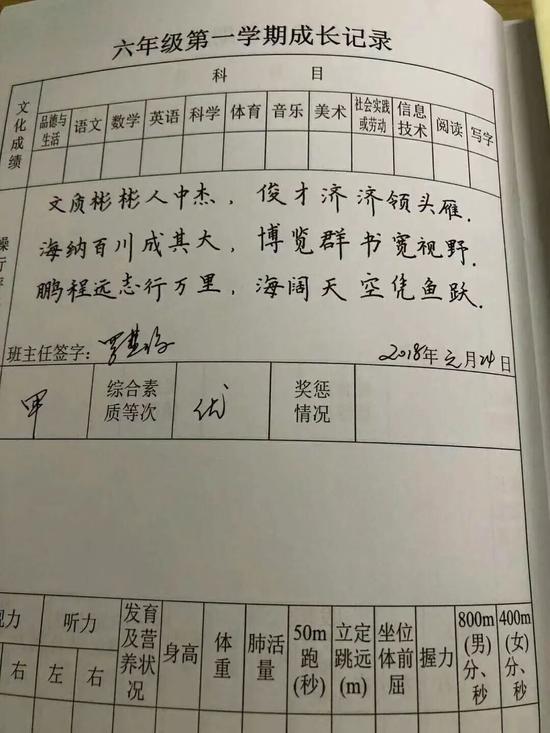 六年级第一学期成长记录
文化成绩
科 目
品德与生活 语文 数学 英语 科学 体育 音乐 美术 社会实践或劳动 信息技术 阅读 写字
操行
文质彬彬人中杰，俊才济济领头雁.
海纳百川成其大，博览群书宽视野.
鹏程远志行万里，海阔天空凭鱼跃.
班主任签字：
2018年元月24日
甲 综合素质等次 优 奖惩情况
视力 听力 发育及营养状况 身高 体重 肺活量 50m跑(秒) 立定跳远(m) 坐位体前屈 握力 800m(男)分、秒 400m(女)分、秒
右 左 右